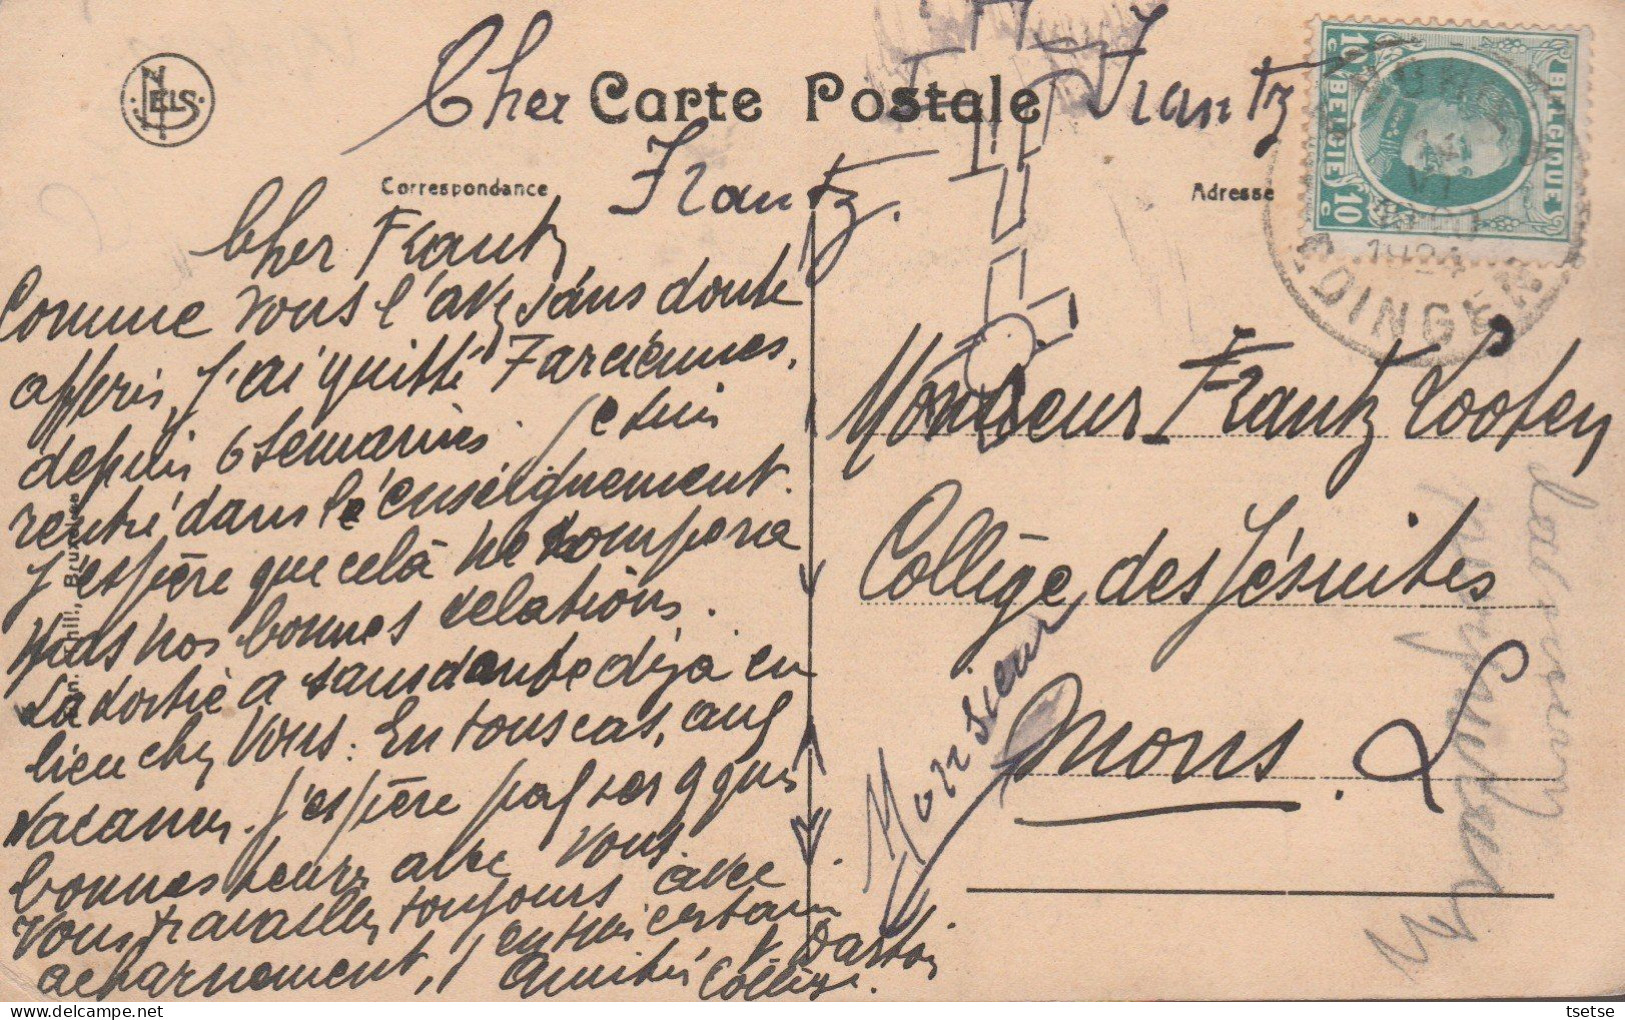 NELS
Cher Frantz
Carte Postale
Correspondance
Adresse
Frantz.
BELGIQUE
BELGIË
10 c
10 c
EDINGEN
Cher Frantz
Comme vous l'avez sans doute
appris, j'ai quitté Farciennes.
depuis 6 semaines. Je suis
rentré dans l'enseignement.
J'espère que celà ne rompera
pas nos bonnes relations.
La sortie a sans doute déjà eu
lieu chez Vous. En tous cas, aux
vacances. j'espère passer qques
bonnes heures avec vous
Vous travaillez toujours avec
acharnement, j'en suis certain
Amitiés
Collège.
Monsieur Frantz
Collège des Jésuites
Mons.
Monsieur
Thill, Bruxelles
tsetse